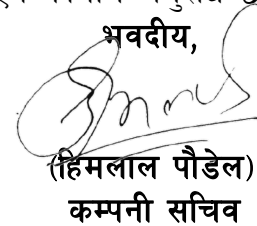 भवदीय,
(हिमलाल पौडेल)
कम्पनी सचिव